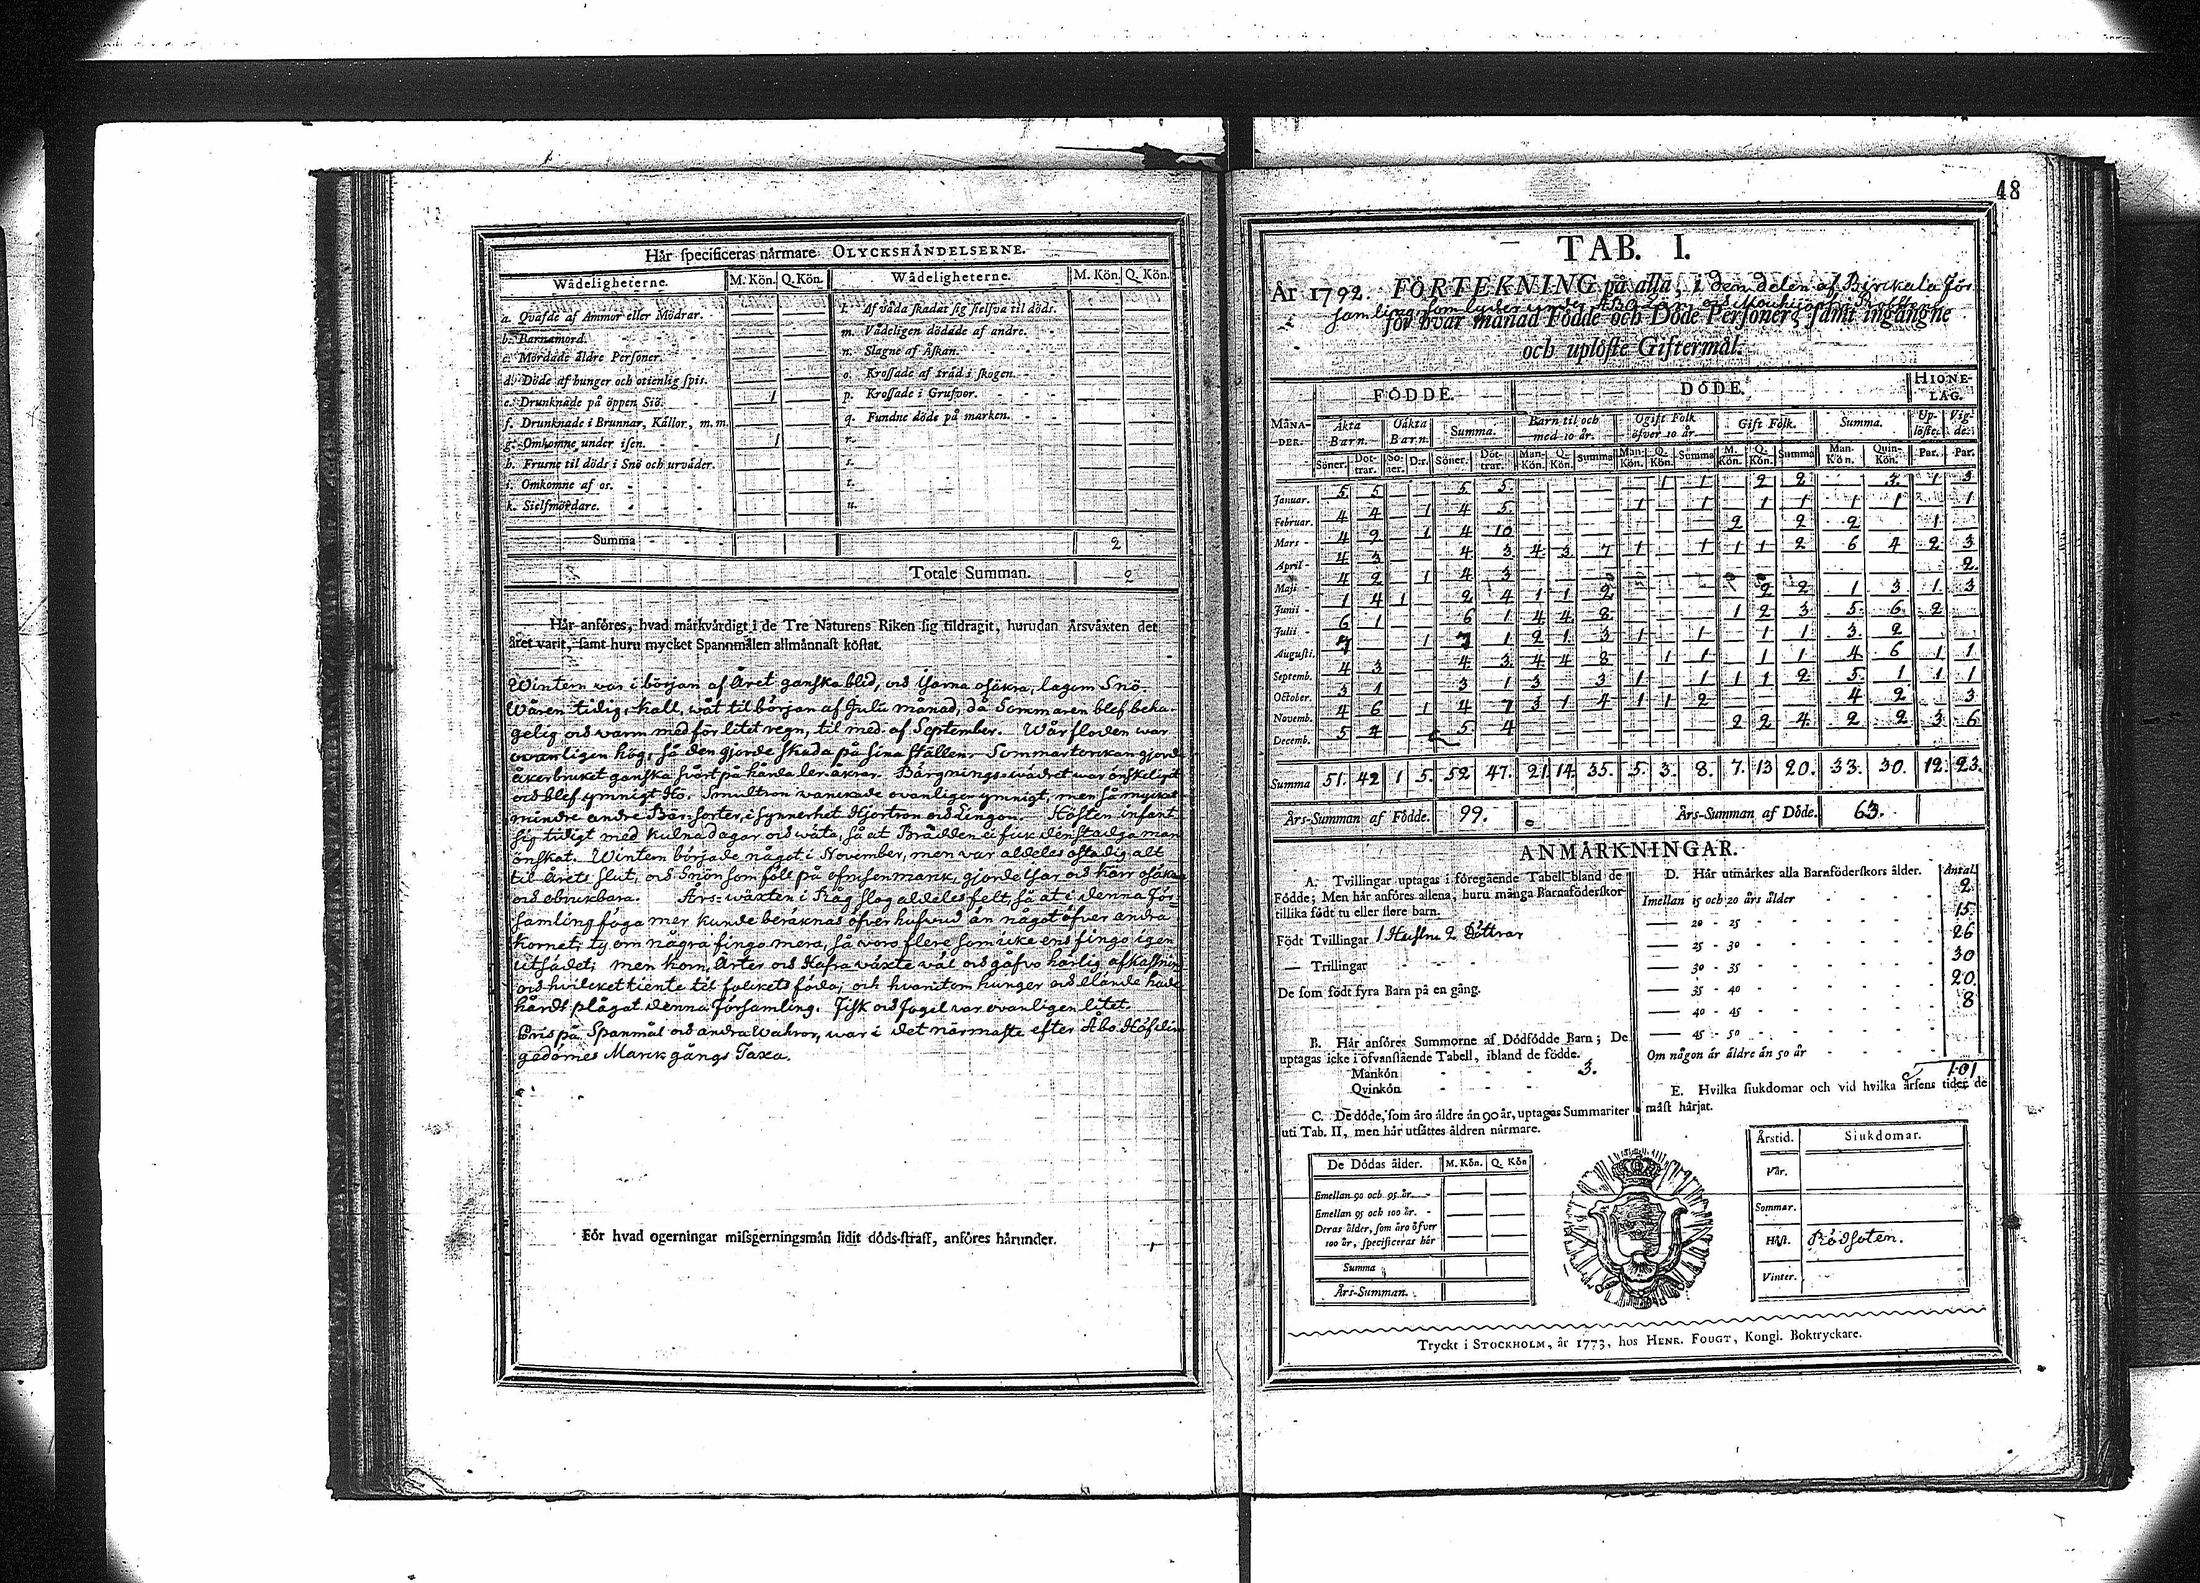 Här specificeras närmare OLYCKSHÄNDELSERNE.
Wådeligheterne. M. Kön. Q. Kön. Wådeligheterne. M. Kön. Q. Kön.
a. Qväfde af Ammor eller Mödrar. l. Af våda skadat sig sielfva til döds.
b. Barnamord. m. Vådeligen dödade af andre.
c. Mördade äldre Personer. n. Slagne af Åskan.
d. Döde af hunger och otienlig spis. o. Krossade af träd i skogen.
e. Drunknade på öppen Siö. 1 p. Krossade i Grufvor.
f. Drunknade i Brunnar, Källor, m. m. q. Fundne döde på marken.
g. Omkomne under isen. 1 r.
h. Frusne til döds i Snö och urväder. s.
i. Omkomne af os. t.
k. Sielfmördare. u.
Summa 2
Totale Summan. 2
Här anföres, hvad märkvärdigt i de Tre Naturens Riken sig tildragit, hurudan Årsväxten det
året varit, samt huru mycket Spannmålen allmännast kostat.
Wintern var i början af Året ganska blid, och isarna osäkra, lagom Snö.
Wåren tidig, kall, wåt til början af Julii månad, då Sommaren blef beha-
gelig och varm med för litet regn, til med. af September. Wårfloden war
ovanligen hög, så den gjorde skada på sina ställen. Sommartorkan gjorde
åkerbruket ganska svårt på hårda leråkrar. Bärgnings-wädret war önskeligit
och blef ymnigt Hö. Smultron vanckade ovanligen ymnigt, men så mycket
mindre andre Bär-sorter, i synnerhet Hjortron och Lingon. Hösten infant
sig tidigt med kulna dagar och wäta, så at Brådden ei fick den stadga man
önskat. Wintern började något i November, men var aldeles ostadig alt
til Årets slut, och Snön som föll på ofrusen mark, gjorde isar och kärr osäkra
och obrukbara. Års-wäxten i Råg slog aldeles felt, så at i denna För-
samling föga mer kunde beräknas öfver hufvud än något öfver andra
kornet; ty om några fingo mera, så voro flere som icke ens fingo igen
utsädet; men korn, Ärter och Hafra växte väl och gåfvo härlig afkastning
och hvilcket tiente til folckets föda, och hvarutom hunger och elände hade
hårdt plågat denna Församling. Fisk och Fogel var ovanligen litet.
Pris på Spanmål och andra Wahror, war i det närmaste efter Åbo Höfdin-
gedömes Markgångs Taxa.
För hvad ogerningar missgerningsmän lidit döds-straff, anföres härunder.
48
TAB. I.
År 1792. FÖRTEKNING på alla, i den delen af Birckala För-
samling som lyder under
för hvar månad Födde och Döde Personer, samt ingångne
och uplöste Giftermål.
FÖDDE. DÖDE. HIONE-LAG.
MÅNA-DER. Äkta Barn. Oäkta Barn. Summa. Barn til och med 10 år. Ogift Folk öfver 10 år. Gift Folk. Summa. Up-löste. Vig-de.
Söner. Döt-trar. So-ner. D:r. Söner. Döt-trar. Man-Kön. Q. Kön. Summa Man-Kön. Q. Kön. Summa M. Kön. Q. Kön. Summa Man-Kön. Quin-Kön. Par. Par.
Januar. 5 5 5 5 1 1 2 2 3 1 3
Februar. 4 4 1 4 5 1 1 1 1 1 1 1
Mars 4 9 1 4 10 2 2 2 1
April 4 3 4 3 4 3 7 1 1 1 1 2 6 4 2 3
Maji 4 2 1 4 3 2
Junii 1 4 1 2 4 1 1 2 2 2 1 3 1 3
Julii 6 1 6 1 4 4 8 1 2 3 5 6 2
Augusti. 7 1 7 1 2 1 3 1 1 1 1 3 2
Septemb. 4 3 4 3 4 4 8 1 1 1 1 4 6 1 1
October. 3 1 3 1 3 3 1 1 1 1 2 5 1 1 1
Novemb. 4 6 1 4 7 3 1 4 1 1 2 4 2 3
Decemb. 5 4 5 4 2 2 4 2 2 3 6
Summa 51. 42 1 5. 52 47. 21. 14. 35. 5. 3. 8. 7. 13 20. 33. 30. 12. 23.
Års-Summan af Födde. 99. Års-Summan af Döde. 63.
ANMÄRKNINGAR.
A. Tvillingar uptagas i föregående Tabell bland de
Födde; Men här anföres allena, huru många Barnaföderskor
tillika födt tu eller flere barn.
Födt Tvillingar 1 Hustru 2 Döttrar
— Trillingar
De som födt fyra Barn på en gång.
B. Här anföres Summorne af Dödfödde Barn; De
uptagas icke i ofvanstående Tabell, ibland de födde.
Mankön 3.
Qvinkön
C. De döde, som äro äldre än 90 år, uptagas Summariter
uti Tab. II, men här utsättes åldren närmare.
De Dödas ålder. M. Kön. Q. Kön
Emellan 90 och 95 år.
Emellan 95 och 100 år.
Deras ålder, som äro öfver
100 år, specificeras här
Summa
Års-Summan.
D. Här utmärkes alla Barnföderskors ålder. Antal
Imellan 15 och 20 års ålder 2
20 - 25 15
25 - 30 26
30 - 35 30
35 - 40 20
40 - 45 8
45 - 50
Om någon är äldre än 50 år
101
E. Hvilka siukdomar och vid hvilka årsens tider de
mäst härjat.
Årstid. Siukdomar.
Vår.
Sommar.
Höst. Rödsoten.
Vinter.
Tryckt i STOCKHOLM, år 1773, hos HENR. FOUGT, Kongl. Boktryckare.